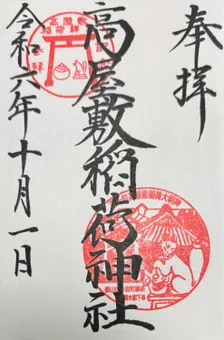 奉拝
高屋敷稲荷神社
令和六年十月一日